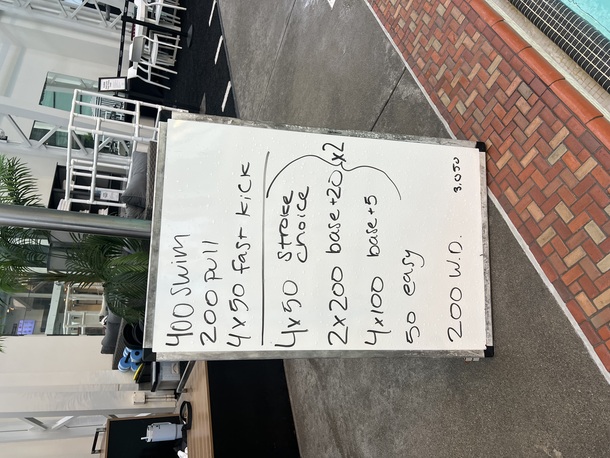 400 SWIM
200 PULL
4x50 Fast Kick
4x50 stroke choice
2x200 base +20
x2
4x100 base +5
50 easy
200 W.D.
3,050